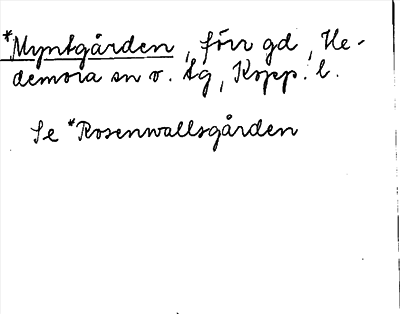 *Myntgården, förr gd, He-
demora sn o. tg, Kopp. l.
Se *Rosenwallsgården